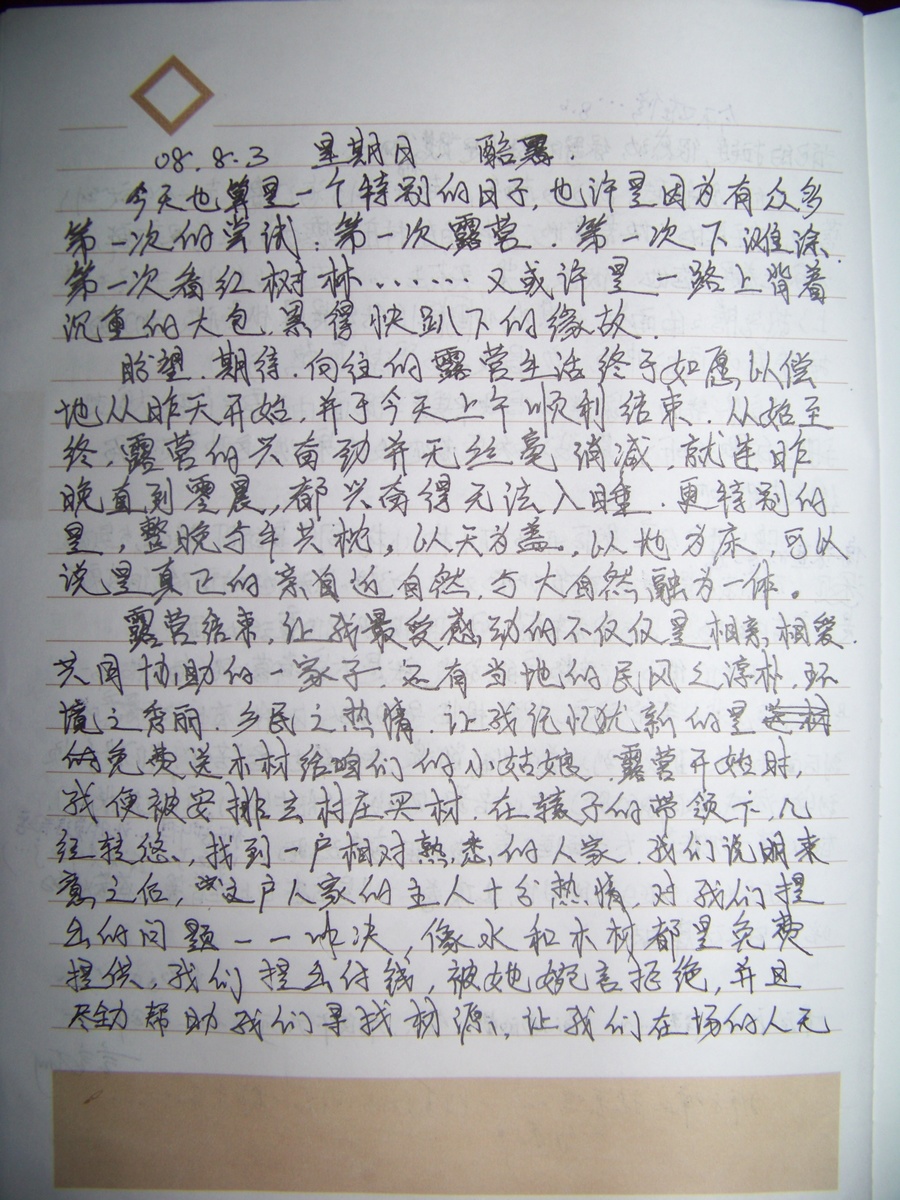 08.8.3 星期日 酷暑.
今天也算是一个特别的日子,也许是因为有众多
第一次的尝试:第一次露营.第一次下滩涂.
第一次看红树林……又或许是一路上背着
沉重的大包,累得快趴下的缘故.
盼望.期待.向往的露营生活终于如愿以偿
地从昨天开始,并于今天上午顺利结束.从始至
终,露营的兴奋劲并无丝毫消减,就连昨
晚直到零晨,都兴奋得无法入睡.更特别的
是,整晚与羊共枕。以天为盖,以地为床,可以
说是真正的亲自近自然,与大自然融为一体。
露营结束,让我最受感动的不仅仅是相亲相爱.
共同协助的一家子,还有当地的民风之淳朴.环
境之秀丽.乡民之热情.让我记忆犹新的是
免费送木材给咱们的小姑娘.露营开始时,
我便被安排去村庄买材.在辕子的带领下,几
经转悠,找到一户相对熟悉的人家.我们说明来
意之后,这户人家的主人十分热情,对我们提
出的问题一一解决,像水和木材都是免费
提供,我们提出付钱,被她婉言拒绝,并且
尽全力帮助我们寻找材源,让我们在场的人无